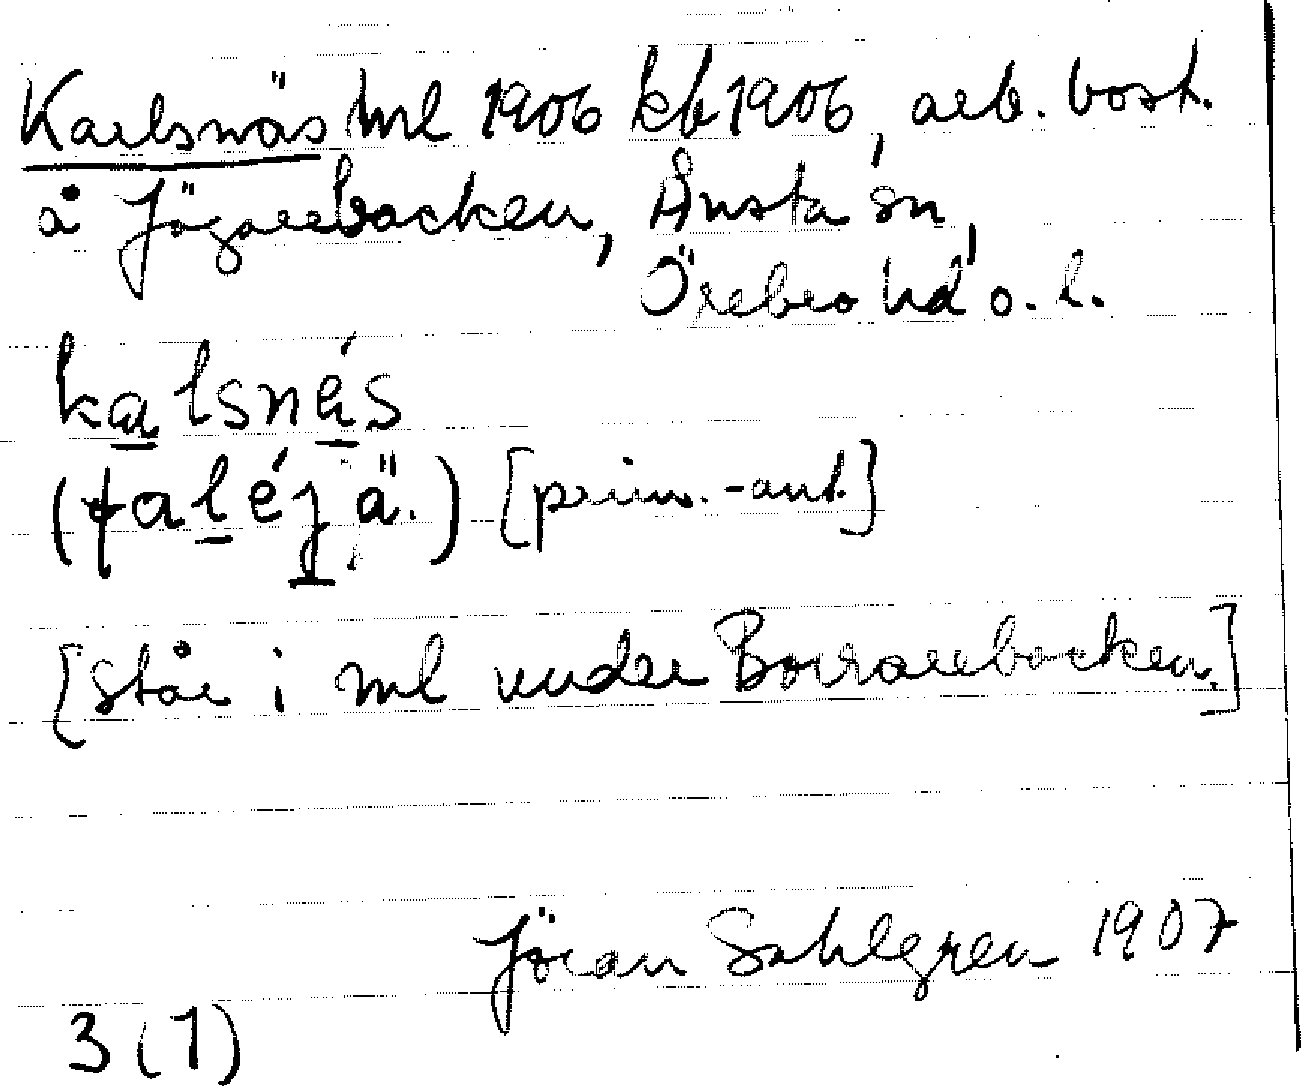 Karlsnäs ml 1906 kb 1906, arb. bost.
å Jägarebacken, Ånsta sn,
Örebro hd ö. l.
kalsnás
(faléjä.) [prim.-ant.]
[står i ml under Borrarebacken.]
Jöran Sahlgren 1907
3 (1)